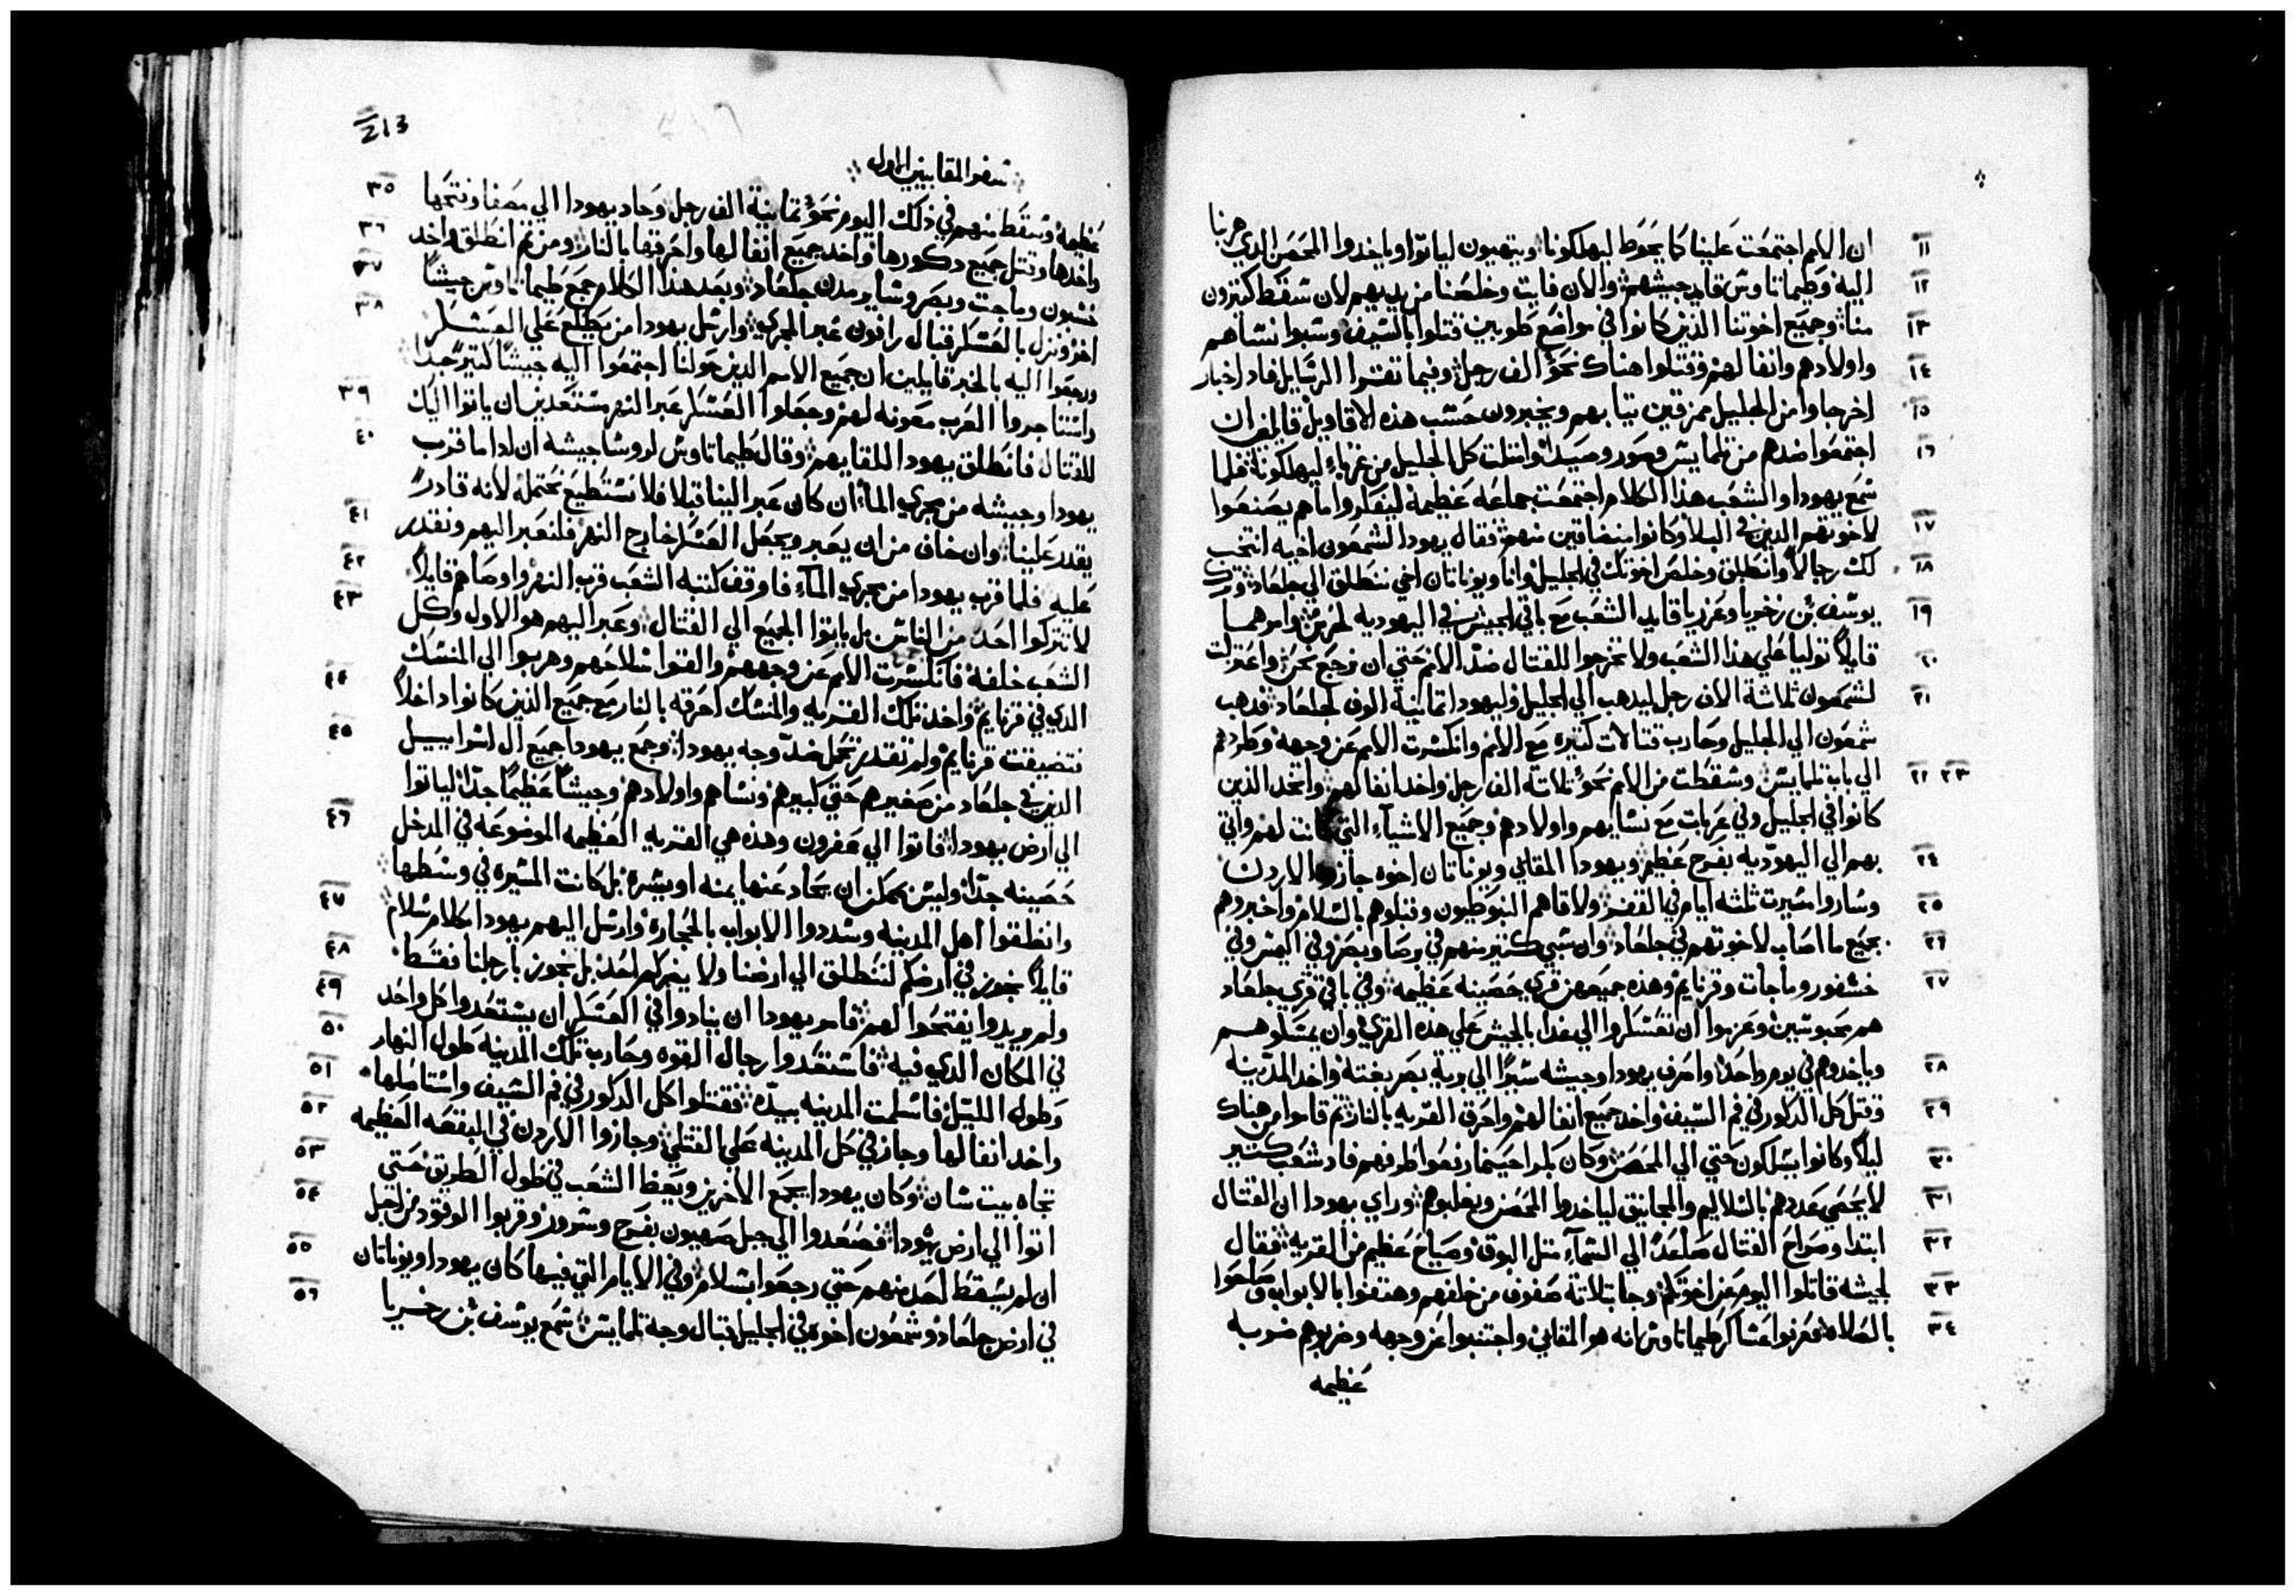 ١١ ان الامم اجتمعت علينا كما يحوط ليهلكونا ويتهيون لياتوا وياخدوا الحصن الدي هربنا
١٢ اليه وطيماتاوس قايد جيشهم والان فايت وخلصنا من يديهم لان سقط كتيرون
١٣ منا وجميع اخوتنا الذين كانوا في مواضع طوبين قتلوا بالسيف وسبوا نساهم
١٤ واولادهم وانفالهم وقتلوا هناك نحو الف رجل وفيما تقتروا الرسايل فاد اخبار
١٥ اخر جاوا من الجليل ممزقين تيابهم ويخبرون حسب هذه الاقاويل قايلين ان
١٦ اجتمعوا ضدهم من تلمايس وصور وصيدا وامتلت كل الجليل من غرباء ليهلكونا فلما
سمع يهودا والشعب هذا الكلام اجتمعت جماعه عظيمة ليفكروا ما هم يصنعوا
١٧ لاخوتهم الدين في البلا وكانوا متضاقين منهم فقال يهودا لشمعون اخيه انتخب
١٨ لك رجالا وانطلق وخلص اخوتك في الجليل وانا ويوناتان اخي ننطلق الي جلعاد وترك
١٩ يوسف بن زخريا وعزريا قايد الشعب مع باقي الجيش في اليهوديه لحرس وامرهما
٢٠ قايلا توليا علي هذا الشعب ولا تخرجوا للقتال ضد الامم حتي ان نرجع نحن واعتزلت
٢١ لشمعون ثلاثة الاف رجل ليدهب الي الجليل وليهودا تمانية الوف لجلعاد فدهب
شمعون الي الجليل وحارب قتالات كتيره مع الامم وانكسرت الامم عن وجهه وطردهم
٢٢ ٢٣ الي باب تلمايس وسقطت من الامم نحو تلاتة الف رجل واخد انفالهم واتخد الذين
كانوا في الجليل وفي عربات مع نسايهم واولادهم وجميع الاشياء التي كانت لهم واتي
٢٤ بهم الي اليهوديه بفرح عظيم ويهودا المقابي ويوناتان اخوه جازوا الاردن
٢٥ وساروا مسيرت تلته ايام في القفر ولاقاهم النبوطيون وقبلوهم بالسلام واخبروهم
٢٦ بجميع ما اصاب لاخوتهم في جلعاد وان سبي كتير منهم في وصا وبصر وفي اليمس وفي
٢٧ خشفور وماجات وقرنايم وهذه جميعهن قري حصينه عظيمه وفي باقي قري جلعاد
هم محبوسين وعزموا ان تعسكروا الي غدا بالجيش علي هذه القري وان يمسكوهم
٢٨ وياخدوهم في يوم واحد وانحرف يهودا وجيشه سيرا الي برية بصر بغتة واخد المدينه
٢٩ وقتل كل الذكور في فم السيف واخد جميع انفالهم واحرق القريه بالنار تم قاموا من هناك
٣٠ ليلا وكانوا يسلكون حتي الي الحصن وكان باكرا حينما رفعوا طرفهم فاد شعب كتير
٣١ لا يحصي عددهم بالسلاليم والمجانيق لياخدوا الحصن ويغلبوهم وراي يهودا ان القتال
٣٢ ابتدا وصراخ القتال صاعد الي السماء متل البوق وصياح عظيم من القريه فقال
٣٣ لجيشه قاتلوا اليوم عن اخوتكم وجا بتلاتة صفوف من خلفهم وهتفوا بالابواق وصلحوا
٣٤ بالصلاه فعرفوا عساكر طيماتاوس انه هو المقابي واجتنبوا عن وجهه وضربوهم ضربه
عظيمه
213
سفر المقابيين الاول
٣٥ عظيمه وسقط منهم في ذلك اليوم نحو تمانية الف رجل وحاد يهودا الي مصفا وفتحها
٣٦ واخدها وقتل جميع دكورها واخد جميع انفالها واحرقها بالنار ومن تم انطلق واخد
٣٧ خشبون وماجت وبصر وساير مدن جلعاد وبعد هذا الكلام جمع طيماتاوس جيشا
٣٨ اخر ونزل بالعسكر قبال رافون عبر المجري وارسل يهودا من يطلع علي العسكر
ورجعوا اليه بالخبر قايلين ان جميع الامم الدين حولنا اجتمعوا اليه جيشا كتير جدا
٣٩ واستاجروا العرب معونه لهم وجعلوا العسكر عبر النهر مستعدين ان ياتوا اليك
٤٠ للقتال فانطلق يهودا للقايهم وقال طيماتاوس لروسا جيشه ان ادا ما قرب
يهودا وجيشه من مجري الما ان كان عبر الينا قبلا فلا نستطيع نحتمله لانه قادرا
٤١ يقدر علينا وان خاف من ان يعبر ويجعل العسكر خارج النهر فلنعبر اليهم ونقدر
٤٢ عليه فلما قرب يهودا من مجري الماء فاوقف كتبة الشعب قرب النهر واوصاهم قايلا
٤٣ لا تتركوا احد من الناس بل ياتوا الجميع الي القتال وعبر اليهم هو الاول وكل
الشعب خلفه فانكسرت الامم عن وجههم والقوا سلاحهم وهربوا الي المنسك
٤٤ الدي في قرنايم واخد تلك القريه والمنسك احرقه بالنار مع جميع الذين كانوا داخلا
٤٥ فتضيقت قرنايم ولم تقدر تحمل ضد وجه يهودا وجمع يهودا جميع ال اسراييل
الدين في جلعاد من صغيرهم حتي كبيرهم ونساهم واولادهم وجيشا عظيما جدا لياتوا
٤٦ الي ارض يهودا فاتوا الي عفرون وهذه هي القريه العظيمه الموضوعه في المدخل
حصينه جدا وليس يمكن ان يحاد عنها يمنه او يسره بل كانت المسيره في وسطها
٤٧ وانطلقوا اهل المدينه وسددوا الابواب بالحجاره وارسل اليهم يهودا بكلام سلام
٤٨ قايلا نجوز في ارضكم لننطلق الي ارضنا ولا يضركم احد بل نجوز بارجلنا فقط
٤٩ ولم يريدوا يفتحوا لهم فامر يهودا ان ينادوا في العسكر ان يستعدوا كل واحد
٥٠ في المكان الدي فيه فاستعدوا رجال القوه وحارب تلك المدينه طول النهار
٥١ وطول الليل فاسلمت المدينه بيده فقتلوا كل الدكور في فم السيف واستاصلها
٥٢ واخد انفالها وجاز في كل المدينه علي القتلي وجازوا الاردن في البقعه العظيمه
٥٣ تجاه بيت شان وكان يهودا يجمع الاخرين ويعظ الشعب في طول الطريق حتي
٥٤ اتوا الي ارض يهودا فصعدوا الي جبل صهيون بفرح وسرور وقربوا الوقود من اجل
٥٥ ان لم يسقط احد منهم حتي رجعوا بسلام وفي الايام التي فيها كان يهودا ويوناتان
٥٦ في ارض جلعاد وشمعون اخوه في الجليل قبال وجه تلمايس سمع يوسف بن زخريا